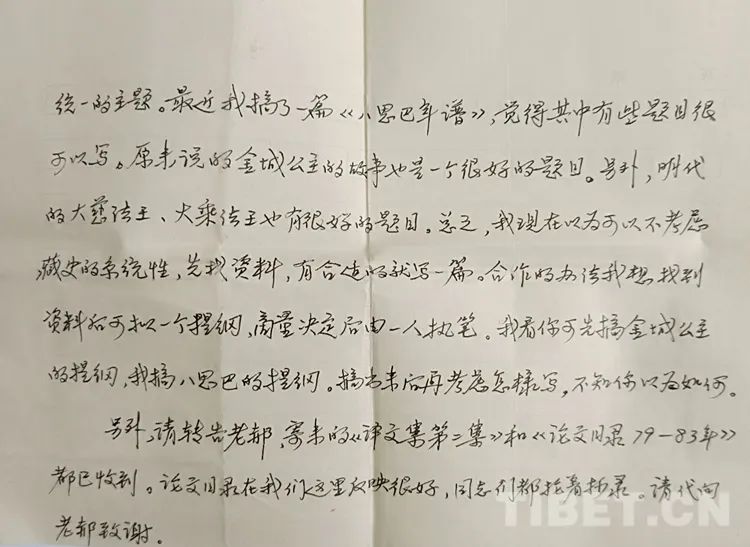 统一的主题。最近我搞了一篇《八思巴年谱》，觉得其中有些题目很
可以写。原来说的金城公主的故事也是一个很好的题目。另外，明代
的大慈法王、大乘法王也有很好的题目。总之，我现在以为可以不考虑
藏史的系统性，先找资料，有合适的就写一篇。合作的办法我想找到
资料后可拟一个提纲，商量决定后由一人执笔。我看你可先搞金城公主
的提纲，我搞八思巴的提纲。搞出来后再考虑怎样写，不知你以为如何。
另外，请转告老郝，寄来的《译文集第二集》和《论文目录79—83年》
都已收到。论文目录在我们这里反映很好，同志们都抢着抄录。请代向
老郝致谢。
TIBET.CN